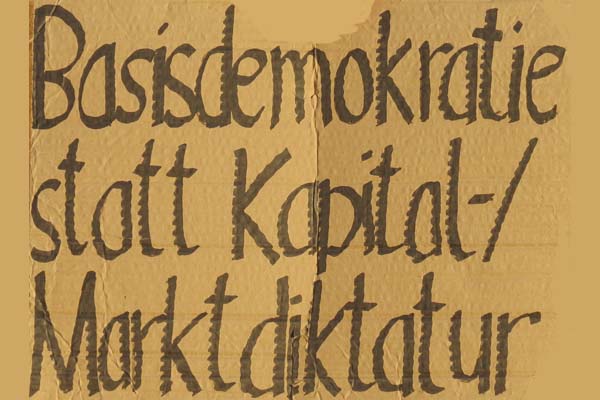 Basisdemokratie
statt Kapital-/
Marktdiktatur